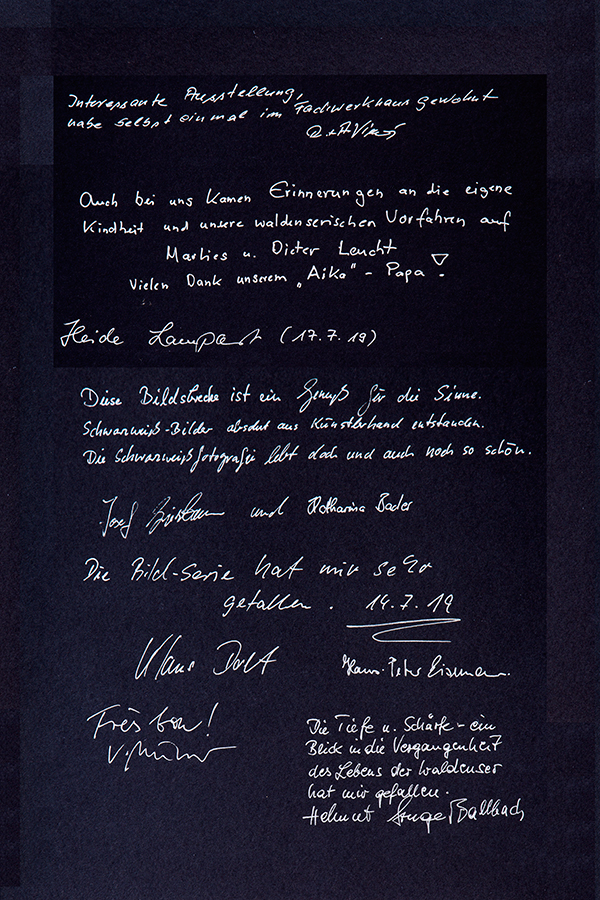 Interessante Ausstellung,
habe selbst einmal im Fachwerkhaus gewohnt
Auch bei uns kamen Erinnerungen an die eigene
Kindheit und unsere waldenserischen Vorfahren auf
Marlies u. Dieter Leucht
Vielen Dank unserem „Aika" - Papa!
Heide Lampart (17.7.19)
Diese Bildstrecke ist ein Genuß für die Sinne.
Schwarzweiß-Bilder absolut aus Künstlerhand entstanden.
Die Schwarzweißfotografie lebt doch und auch noch so schön.
Josef und Katharina Bader
Die Bild-Serie hat mir sehr
gefallen. 14.7.19
Klaus Hans-Peter Eismann.
Très bon!
Die Tiefe u. Schärfe - ein
Blick in die Vergangenheit
des Lebens der Waldenser
hat mir gefallen.
Helmut Ballbach